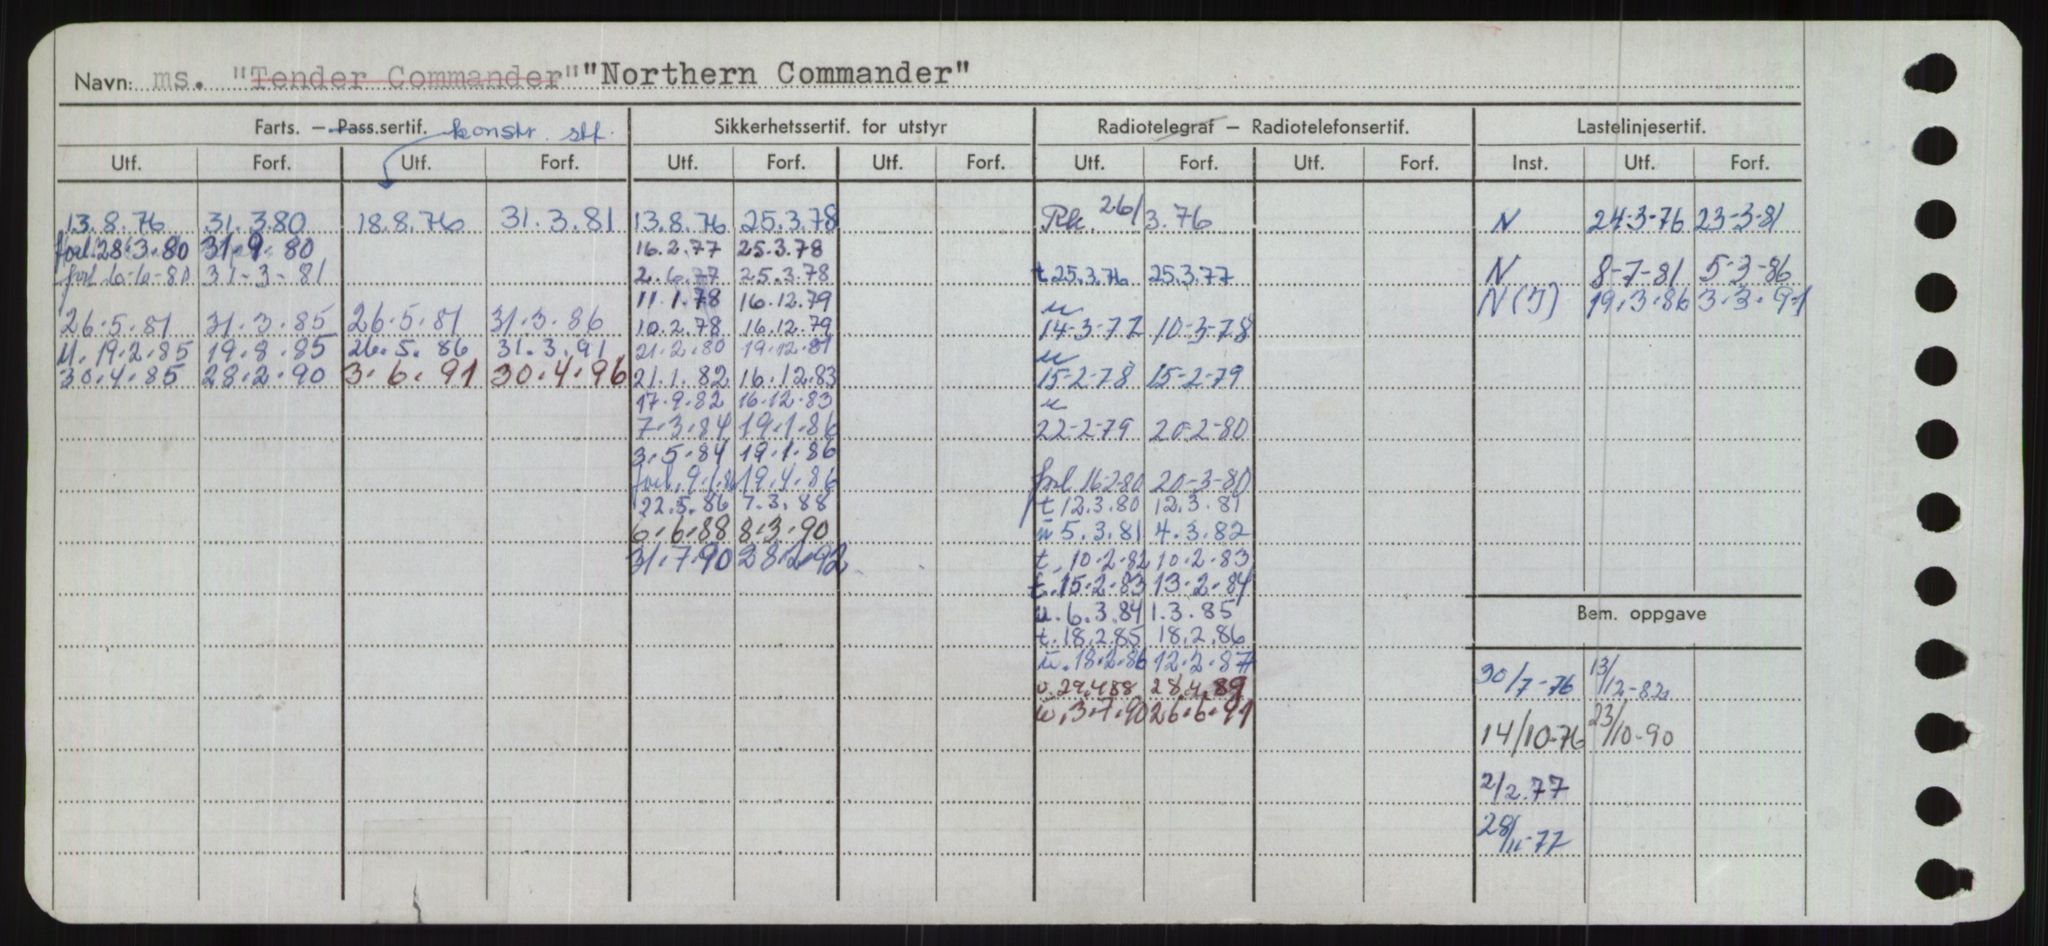 Navn: ms. "Tender Commander" "Northern Commander"
Farts. – Pass.sertif. konstr. stf.
Utf. Forf. Utf. Forf.
13.8.76 31.3.80 18.8.76 31.3.81
forl. 28.3.80 31.9.80
forl 6-6-80 31-3-81
26.5.81 31.3.85 26.5.81 31.3.86
M. 19.2.85 19.8.85 26.5.86 31.3.91
30.4.85 28.2.90 3.6.91 30.4.96
Sikkerhetssertif. for utstyr
Utf. Forf. Utf. Forf.
13.8.76 25.3.78
16.2.77 25.3.78
2.6.77 25.3.78
11.1.78 16.12.79
10.2.78 16.12.79
21.2.80 19.12.81
21.1.82 16.12.83
17.9.82 16.12.83
7.3.84 19.1.86
3.5.84 19.1.86
forl. 9.1.86 19.4.86
22.5.86 7.3.88
6.6.88 8.3.90
31.7.90 28.2.92
Radiotelegraf – Radiotelefonsertif.
Utf. Forf. Utf. Forf.
Rk. 26/3.76
t 25.3.76 25.3.77
u
14-3-77 10-3-78
u
15-2-78 15-2-79
u
22-2-79 20-2-80
forl 16-2-80 20-3-80
t 12.3.80 12.3.81
u 5.3.81 4.3.82
t. 10.2.82 10.2.83
t. 15.2.83 13.2.84
u. 6.3.84 1.3.85
t. 18.2.85 18.2.86
u. 18.2.86 12.2.87
u. 29.4.88 28.4.89
u. 3.7.90 26.6.91
Lastelinjesertif.
Inst. Utf. Forf.
N 24-3-76 23-3-81
N 8-7-81 5-3-86
N (I) 19.3.86 3.3.91
Bem. oppgave
30/7-76 13/12-82
14/10-76 23/10-90
2/2.77
28/11-77